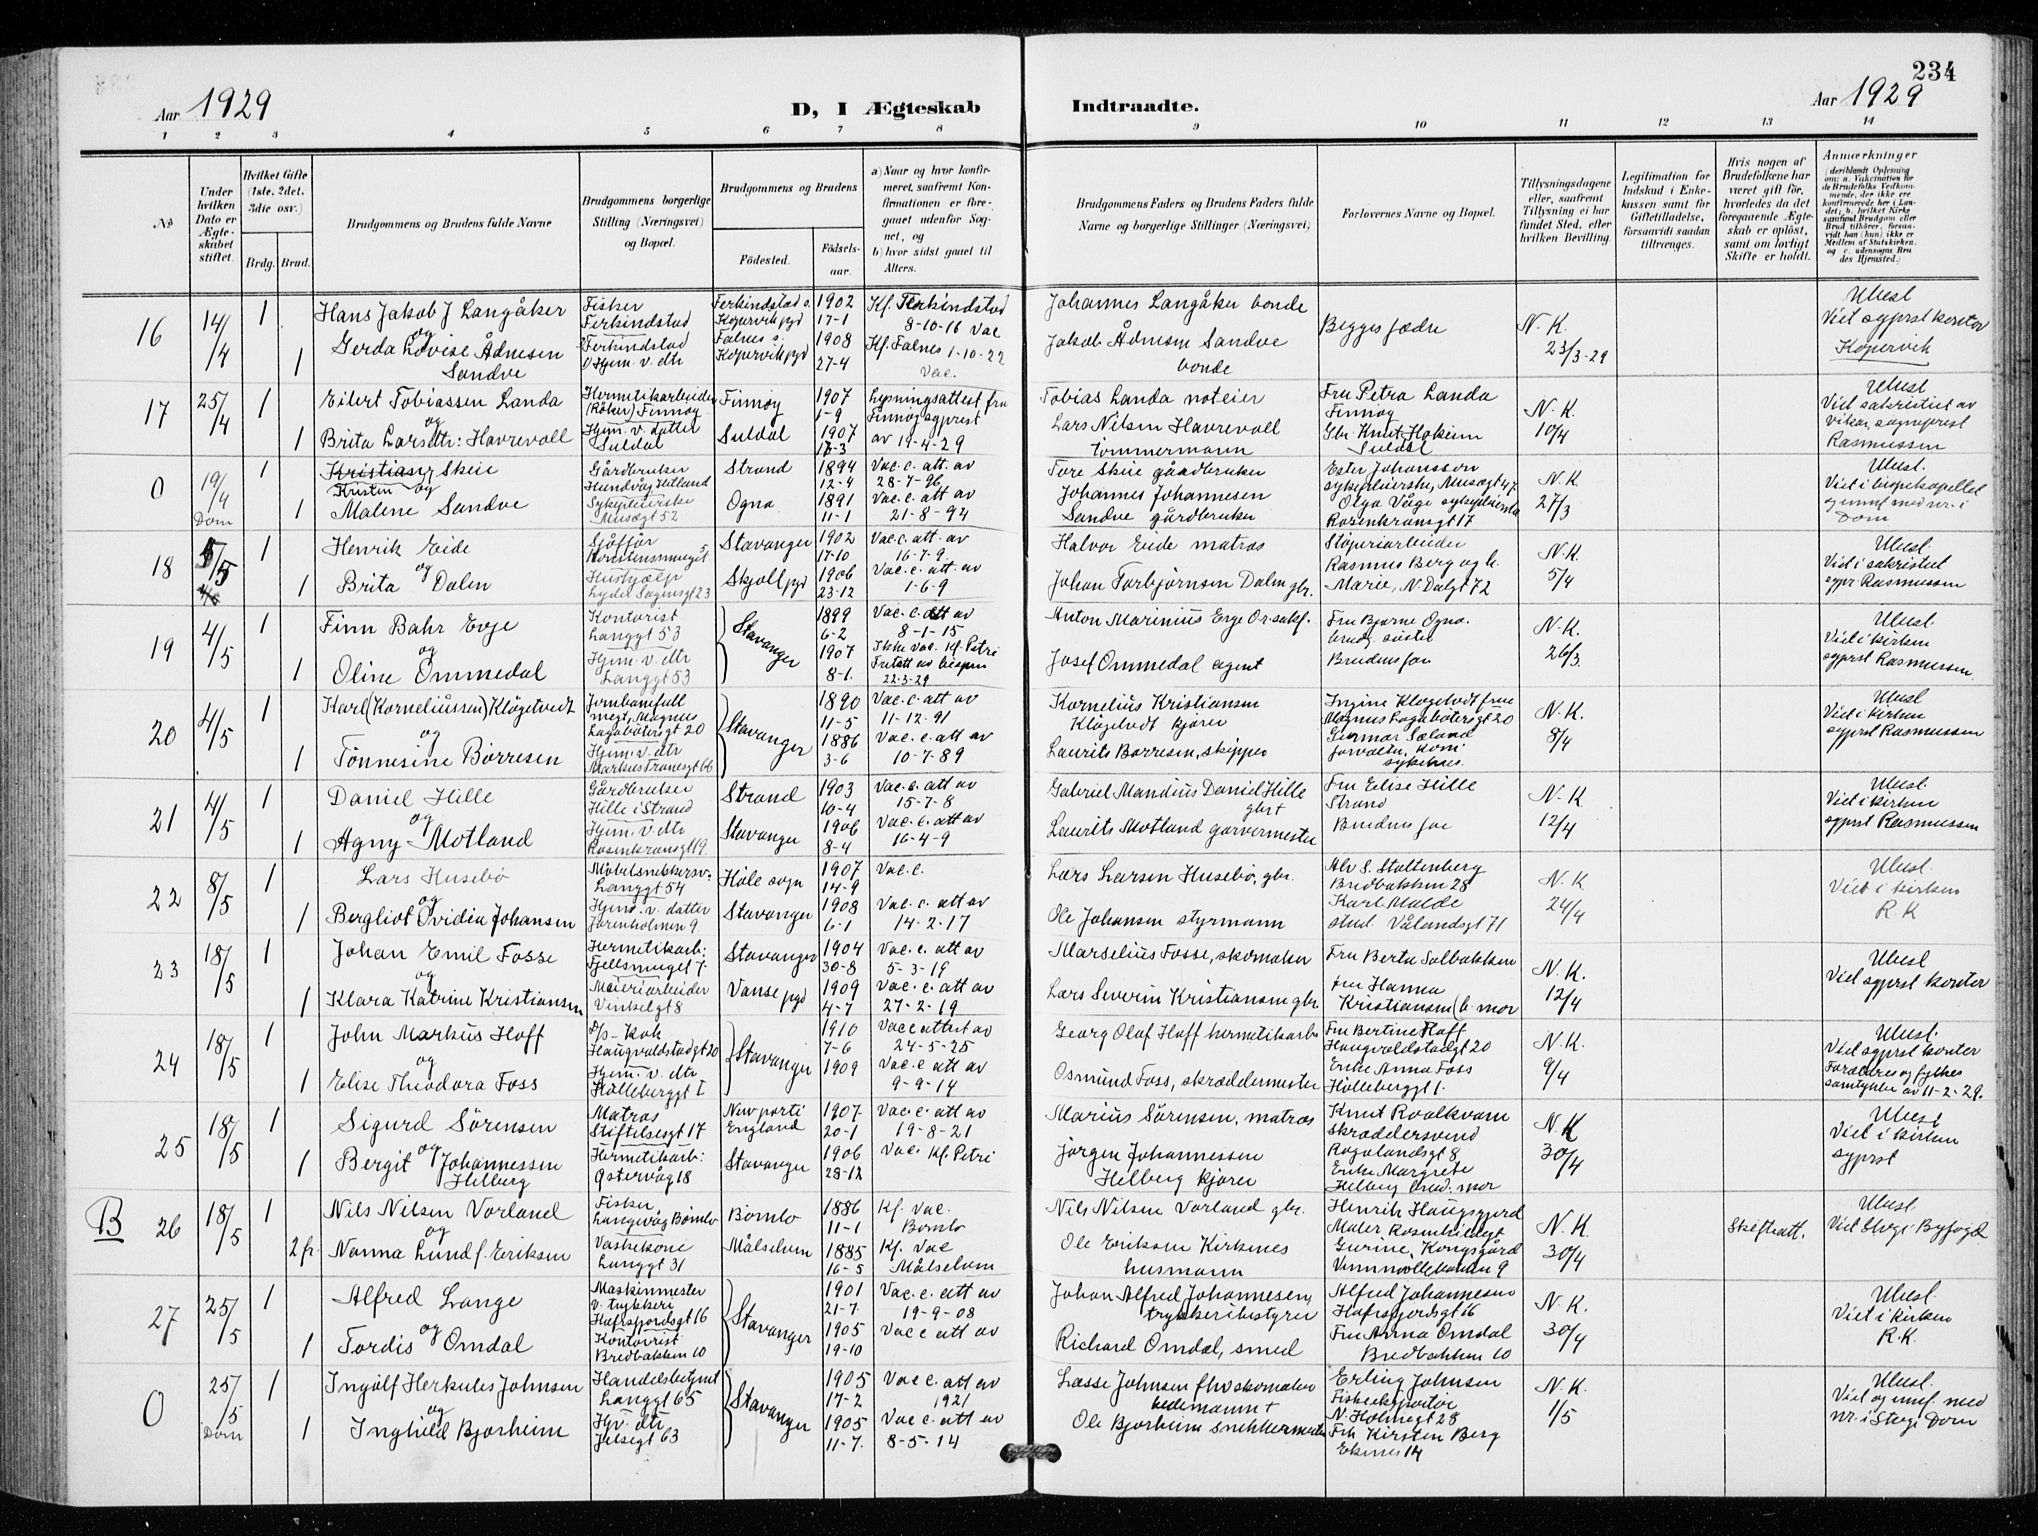 234
Aar 1929
D, I Ægteskab Indtraadte.
Aar 1929
1 2 3 4 5 6 7 8 9 10 11 12 13 14
№
Under hvilken Dato er Ægteskabet stiftet.
Hvilket Gifte (1ste, 2det, 3die osv.)
Brdg. Brud.
Brudgommens og Brudens fulde Navne
Brudgommens borgerlige Stilling (Næringsvei) og Bopæl.
Brudgommens og Brudens
Födested. Födselsaar.
a) Naar og hvor konfirmeret, saafremt Konfirmationen er foregaaet udenfor Sognet, og
b) hvor sidst gaaet til Alters.
Brudgommens Faders og Brudens Faders fulde Navne og borgerlige Stillinger (Næringsvei)
Forlovernes Navne og Bopæl.
Tillysningsdagene eller, saafremt Tillysning ei har fundet Sted, efter hvilken Bevilling.
Legitimation for Indskud i Enkekassen samt for Giftetilladelse, forsaavidt saadan tiltrænges.
Hvis nogen af Brudefolkene har været gift för, hvorledes da det foregaaende Ægteskab er oplöst, samt om lovligt Skifte er holdt.
Anmærkninger
16 14/4 1 Hans Jakob J Langåker Fisker Ferkindstad Ferkindstad s. Kopervik pgd 1902 17-1 Kf. Ferkindstad 8-10-16 Vac Johannes Langåker bonde Begges fædre N.K. 23/3-29 Ubesl Viet sogprst kontor Kopervik
og
1 Gerda Lovise Ådnesen Sandve Ferkindstad Hjem. v. dtr Falnes s. Kopervik pgd 1908 27-4 Kf. Falnes 1-10-22 Vac. Jakob Ådnesen Sandve bonde
17 25/4 1 Eilert Tobiassen Landa Hermetikarbeider Finnøy Finnøy 1907 1-9 Lysningsattest fra Finnøy sogprest av 19-4-29 Tobias Landa noteier Fru Petra Landa Finnøy N.K. 10/4 Ubesl Viet sakristiet av vikar, sogneprest Rasmussen
og
1 Brita Larsdtr: Havrevoll Hjem. v. datter Suldal Suldal 1907 Lars Nilsen Havrevoll tömmermann Gbr. Knut Hakeim Suldal
0 19/4 Dom 1 Kristian, Skeie Kristen Gårdbruker Hundvåg Hetland Strand 1894 12-4 Vac. c. att. av 28-7-96 Tore Skeie gårdbruker Ester Johansson sykepleierske, Musægt 47. N.K. 27/3 Ubesl. Viet i bispekapellet
og
1 Malene Sandve Sykepleierske Musægt 52 Ogna 1891 11-1 Vac. c. att av 21-8-94 Johannes Johannesen Sandve gårdbruker Olga Våge sykepleierske Rosenkransgt 17
18 5/5 1 Henrik Eide Sjåffør Stavanger 1902 17-10 Vac. c. att. av 16-7-9. Halvor Eide matros Støperiarbeider Rasmus Berg og h. N.K. 5/4 Ubesl. Viet i sakristiet sogpr. Rasmussen
og
1 Brita Dalen Hushjælp Lyder Sagensgt 23 Skjold pgd 1906 23-12 Vac. c. att. av 1-6-9 Johan Torbjørnsen Dalen gbr. Marie, N. Dalgt 72
19 4/5 1 Finn Bahr Evje Kontorist Langgt 53 Stavanger 1899 6-2 Vac. c. att av 8-1-15 Anton Marinius Evje O.r.sakf. Fru Bjarne Ogna. brudg. søster N.K. 26/3. Ubesl. Viet i kirken sogprst Rasmussen.
og
1 Oline Ommedal Hjem. v. dtr Langgt 53 1907 8-1. Ikke Vac. Kf. Petri Fritatt av bispen 22-3-29 Josef Ommedal agent Brudens far
20 4/5 1 Karl (Korneliussen) Kløgetvedt Jernbanefullmegt. Magnus Lagabøtersgt 20 Stavanger 1890 11-5 Vac. c. att av 11-12-91 Kornelius Kristiansen Kløgetvedt kjører Ingine Kløgetvedt frue Magnus Lagabøtersgt 20 N.K. 8/4 Ubesl Viet i kirken sogprst Rasmussen
og
1 Tönnesine Börresen Hjem. v. dtr Markus Tranesgt 66 1886 3-6 Vac. c. att av 10-7-89 Laurits Börresen, skipper Germar Sæland forvalter, Kom: sykehus.
21 4/5 1 Daniel Hille Gårdbruker Hille i Strand Strand 1903 10-4 Vac. c. att av 15-7-8 Gabriel Mandius Daniel Hille gbr Fru Elise Hille Strand N.K 12/4 Ubesl. Viet i kirken sogprst Rasmussen
og
1 Agny Motland Hjem. v. dtr Rosenkransgt 19. Stavanger 1906 8-4 Vac. c. att av 16-4-9 Laurits Motland garvermester Brudens far
22 8/5 1 Lars Husebö Möbelsnekkersv. Langgt 54 Høle sogn 1907 14-9 Vac. c. Lars Larsen Husebö, gbr. Alv S. Stoltenberg Bredbakken 28 N.K 24/4 Ubesl. Viet i kirken R.K
og
1 Bergliot Ovidia Johansen Hjem. v. datter Jorenholmen 9 Stavanger 1908 6-1 Vac. c. att av 14-2-17 Ole Johansen styrmann Karl Malde stud. Vålandsgt 71
23 18/5 1 Johan Emil Fosse Hermetikarb: Fjellsmuget 7 Stavanger 1904 30-8 Vac. c. att av 5-3-19 Marselius Fosse, skomaker Fru Berta Solbakken N.K. 12/4 Ubesl Viet sogprst kontor
og
1 Klara Katrine Kristiansen Meieriarbeider Vinkelgt 8 Vanse pgd 1909 4-7 Vac. c. att av 27-2-19 Lars Severin Kristiansen gbr. fru Hanna Kristiansen (b. mor
24 18/5 1 John Markus Hoff D/p- kok Haugvaldstadgt 20 Stavanger 1910 7-6 Vac c attest av 24-5-25 Georg Olaf Hoff hermetikarb Fru Bertine Hoff Haugvaldstadgt 20 N.K. 9/4 Ubesl. Viet sogprst kontor Forældres og fylkes samtykke av 11-2-29.
og
1 Elise Theodora Foss Hjem. v. dtr Holleberggt 1 1909 Vac. c att av 9-9-14 Osmund Foss, skræddermester Enke Anna Foss Holleberggt 1.
25 18/5 1 Sigurd Sörensen Matros Stiftelsesgt 17 Newport i England 1907 20-1 Vac. c. att av 19-8-21 Marius Sörensen, matros Knut Roalkvam Skræddersvend N.K 30/4 Ubesl Viet i kirken sogprst
og
1 Bergit Johannessen Helberg Hermetikarb: Østervåg 18 Stavanger 1906 28-12 Vac. Kf. Petri Jørgen Johannessen Helberg kjører Rogalandsgt 8 Enke Margrete Helberg brud. mor
B 26 18/5 1 Nils Nilsen Vorland Fisker Langevåg Bømlo Bømlo 1886 11-1 Kf. Vac. Bømlo Nils Nilsen Vorland gbr. Henrik Haugsgjerd Maler N.K. 30/4 Skiftatt. Ubesl. Viet Stvgr Byfogd
og
2 fr. Nanna Lund f. Eriksen Vaskekone Langgt 31 Målselven 1885 16-5 Kf. Vac Målselven Ole Eriksen Kirknes husmann Gurine Kongsgård
27 25/5 1 Alfred Lange Maskinmester v. trykkeri Hafrsfjordsgt 16 Stavanger 1901 21-7. Vac. c. att av 19-9-08 Johan Alfred Johannesen, trykkeribestyrer Alfred Johannesen Hafrsfjordsgt 16 N.K. 30/4 Ubesl. Viet i kirken R.K.
og
1 Tordis Omdal Kontorist Bredbakken 10 1905 19-10 Vac c att av Richard Omdal, smed Fru Anna Omdal Bredbakken 10
0 25/5 Dom 1 Ingolf Herkules Johnsen Handelsbetjent Langgt 65 Stavanger 1905 17-2 Vac c. att av 1921 Lasse Johnsen fhv skomaker Erling Johnsen Fiskeeksportør N. Holmegt 28 N.K. 1/5 Ubesl. Viet og innf. med nr. i Stvgr Dom
og
1 Inghild Bjorheim Hjv. dtr. Jelsegt 63 1905 11-7. Vac c. att av 8-5-14 Ole Bjorheim snekkermester Frk Kirsten Berg Eknes 14